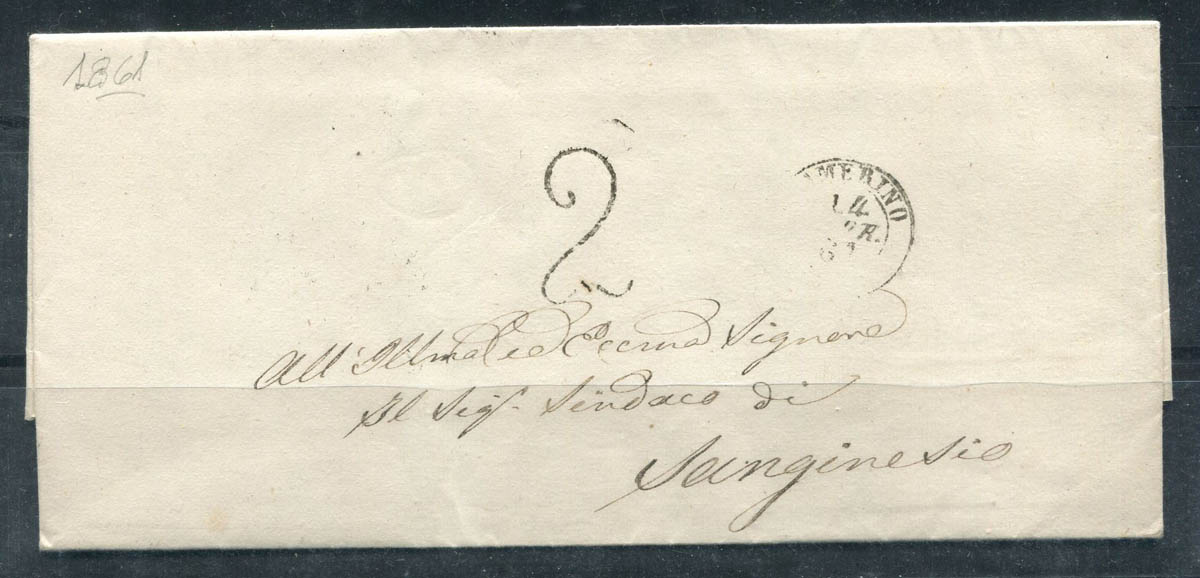 1861
2
MERINO
4
All' Illmo ed Eccmo Signore
Il Sigr. Sindaco di
Sanginesio